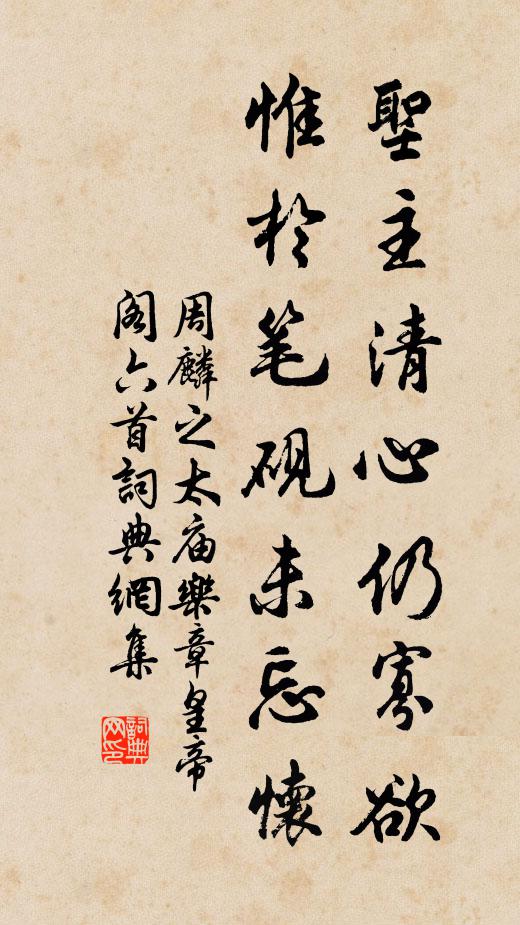 聖主清心仍寡欲
惟於笔硯未忘懷
周麟之太庙樂章皇帝
阁六首詞典網集
詞典网印